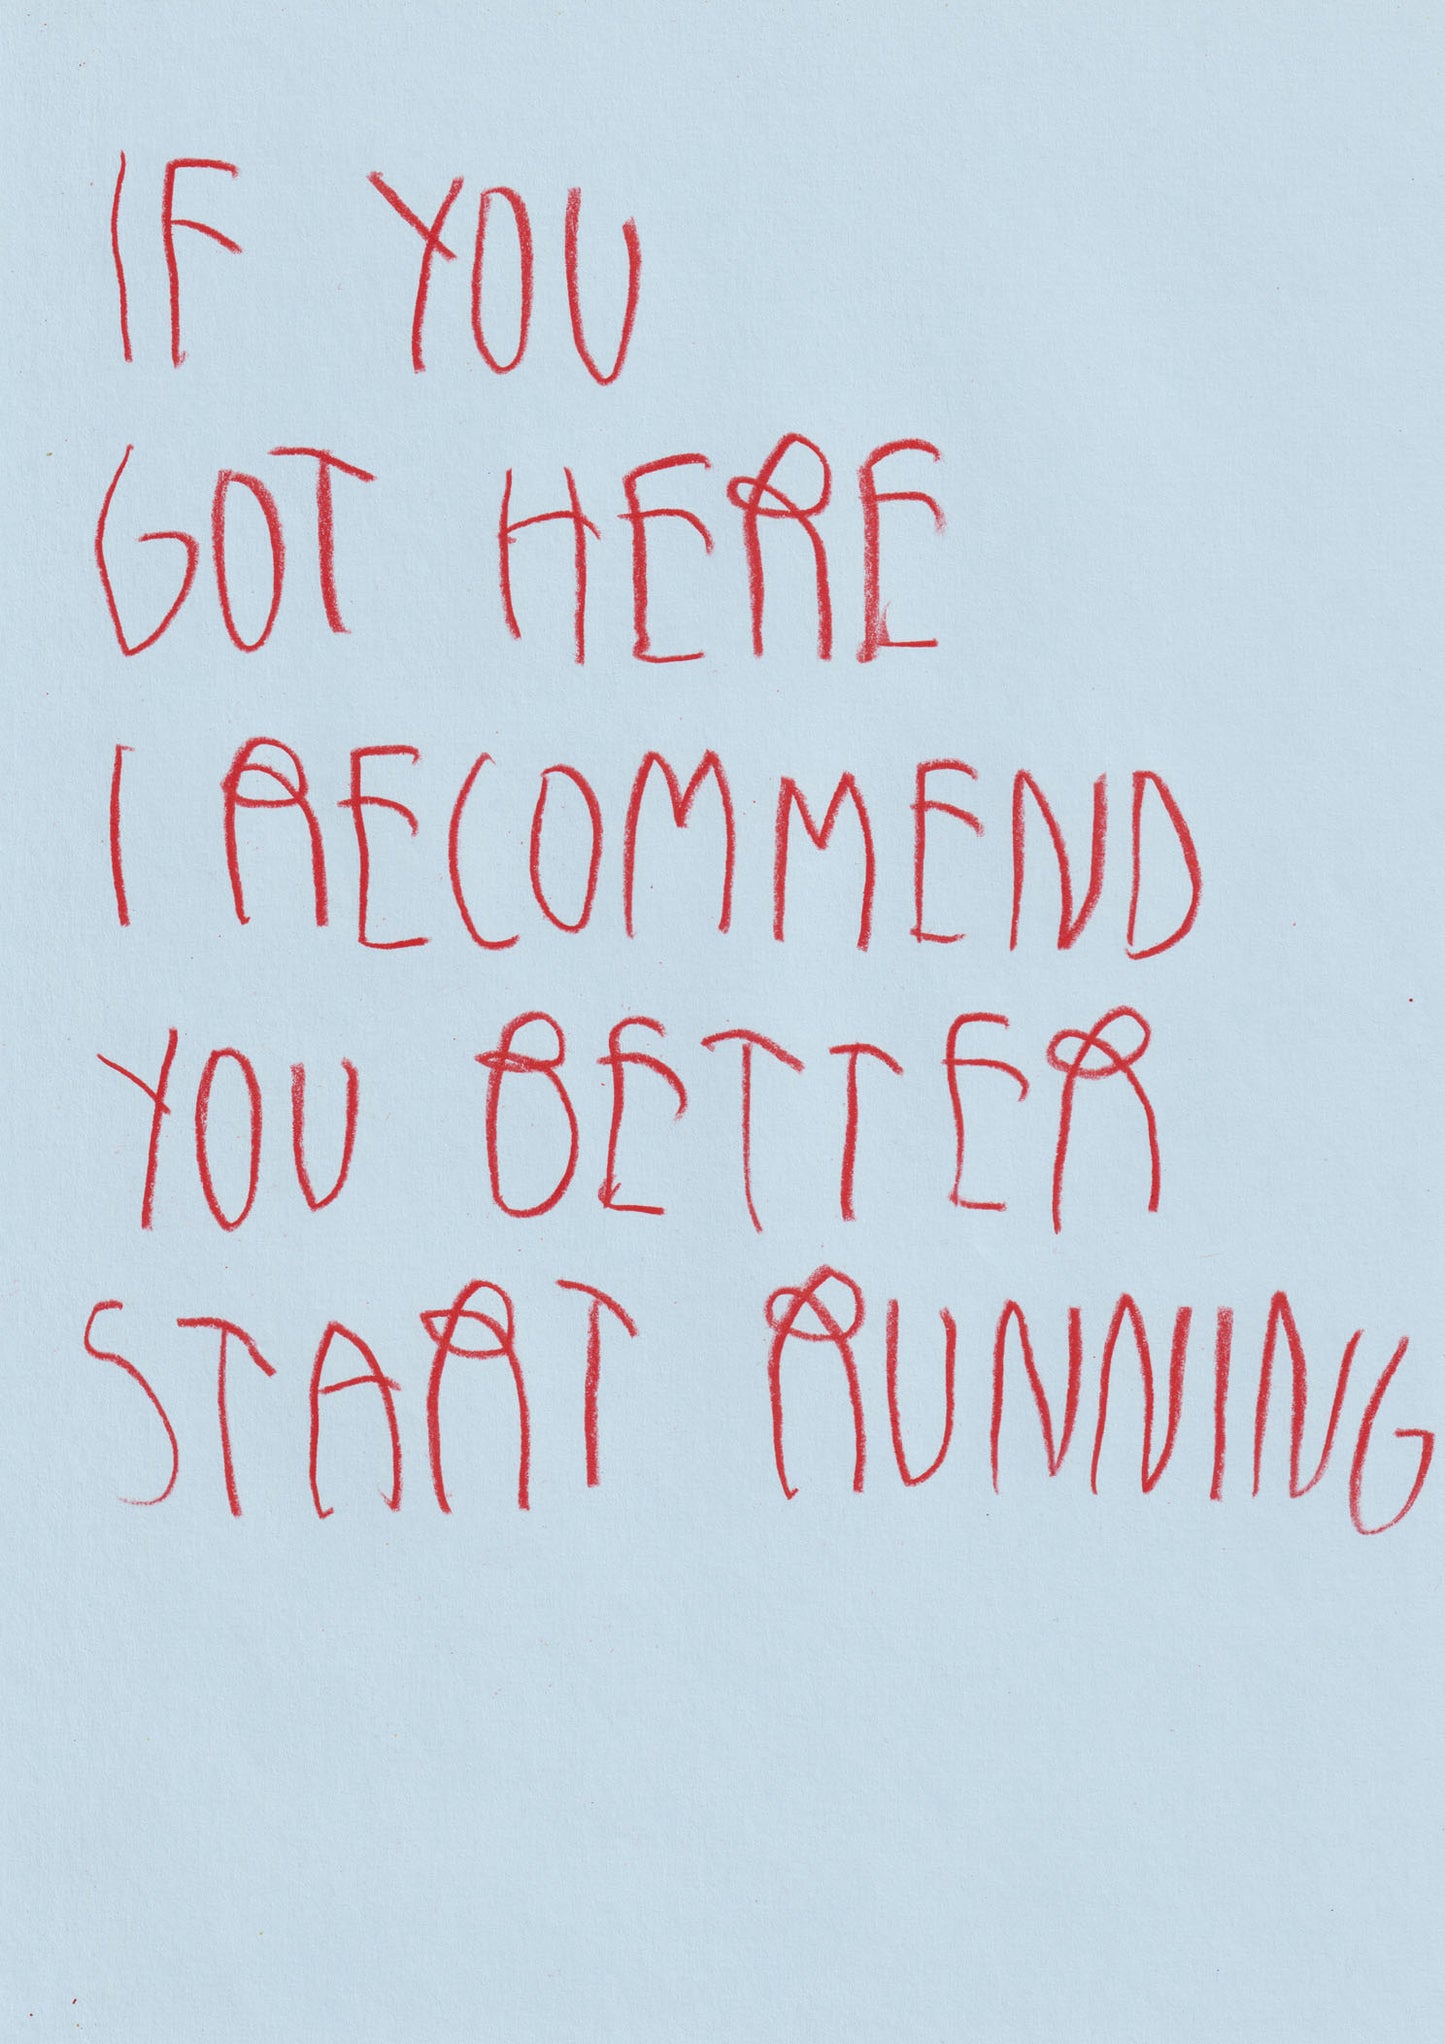 IF YOU
GOT HERE
I RECOMMEND
YOU BETTER
START RUNNING